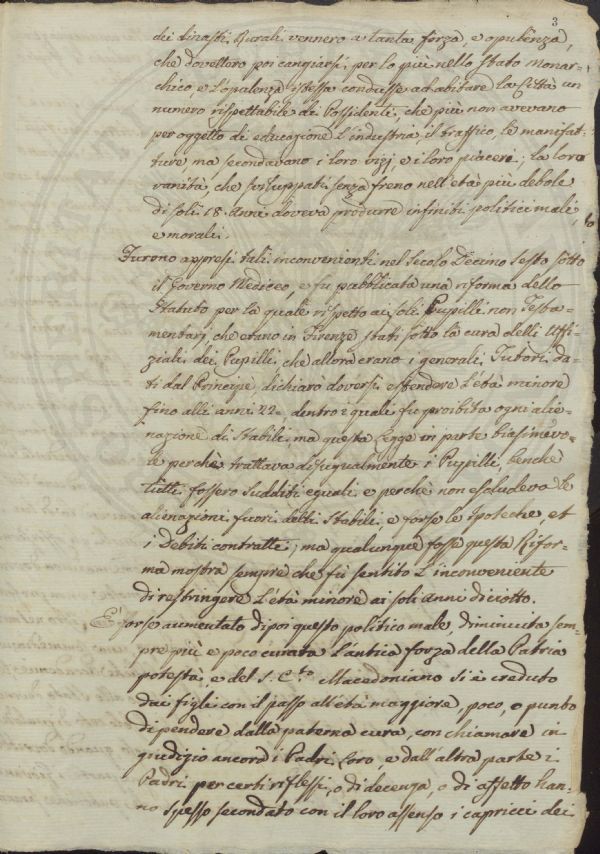 3
dei Dinasti Rurali vennero a tanta forza, e opulenza,
che dovettero poi cangiarsi per lo più nello stato monar-
chico, e l'opulenza istessa condusse ad abitare la Città un
numero rispettabile di Possidenti, che più non avevano
per oggetto di educazione l'industria il traffico, le manifat-
ture ma secondavano i loro vizj, e i loro piaceri; la loro
vanità, che sviluppati senza freno nell'età più debole
di soli 18. anni doveva produrre infiniti politici mali,
e morali.
Furono appresi tali inconvenienti nel Secolo Decimo Sesto sotto
il Governo Mediceo, e fu pubblicata una riforma dello
Statuto per la quale rispetto ai soli Pupilli non Testa-
mentarj che erano in Firenze stati sotto la cura delli Uffi-
ziali dei Pupilli che allora erano i generali Tutori da-
ti dal Principe, dichiarò doversi estendere l'età minore
fino alli anni 22. dentro i quali fu proibita ogni alie-
nazione di Stabili, ma questa Legge in parte biasimevo-
le perchè trattava disugualmente i Pupilli, benchè
tutti fossero sudditi eguali e perchè non escludeva le
alienazioni fuori delli Stabili, e forse le Ipoteche, et
i Debiti contratti; ma qualunque fosse questa Rifor-
ma mostra sempre che fù sentito l'inconveniente
di restringere l'età minore ai soli anni diciotto.
È forse aumentato dipoi questo politico male, diminuita sem-
pre più e poco curata l'antica forza della Patria
potestà, e del S. C.to Macedoniano si è creduto
dai figli con il passo all'età maggiore, poco, o punto
dipendere dalla paterna cura, con chiamare in
giudizio ancora i Padri loro, e dall'altra parte i
Padri per certi riflessi, o di decenza, o di affetto han-
no spesso secondato con il loro assenso i capricci dei